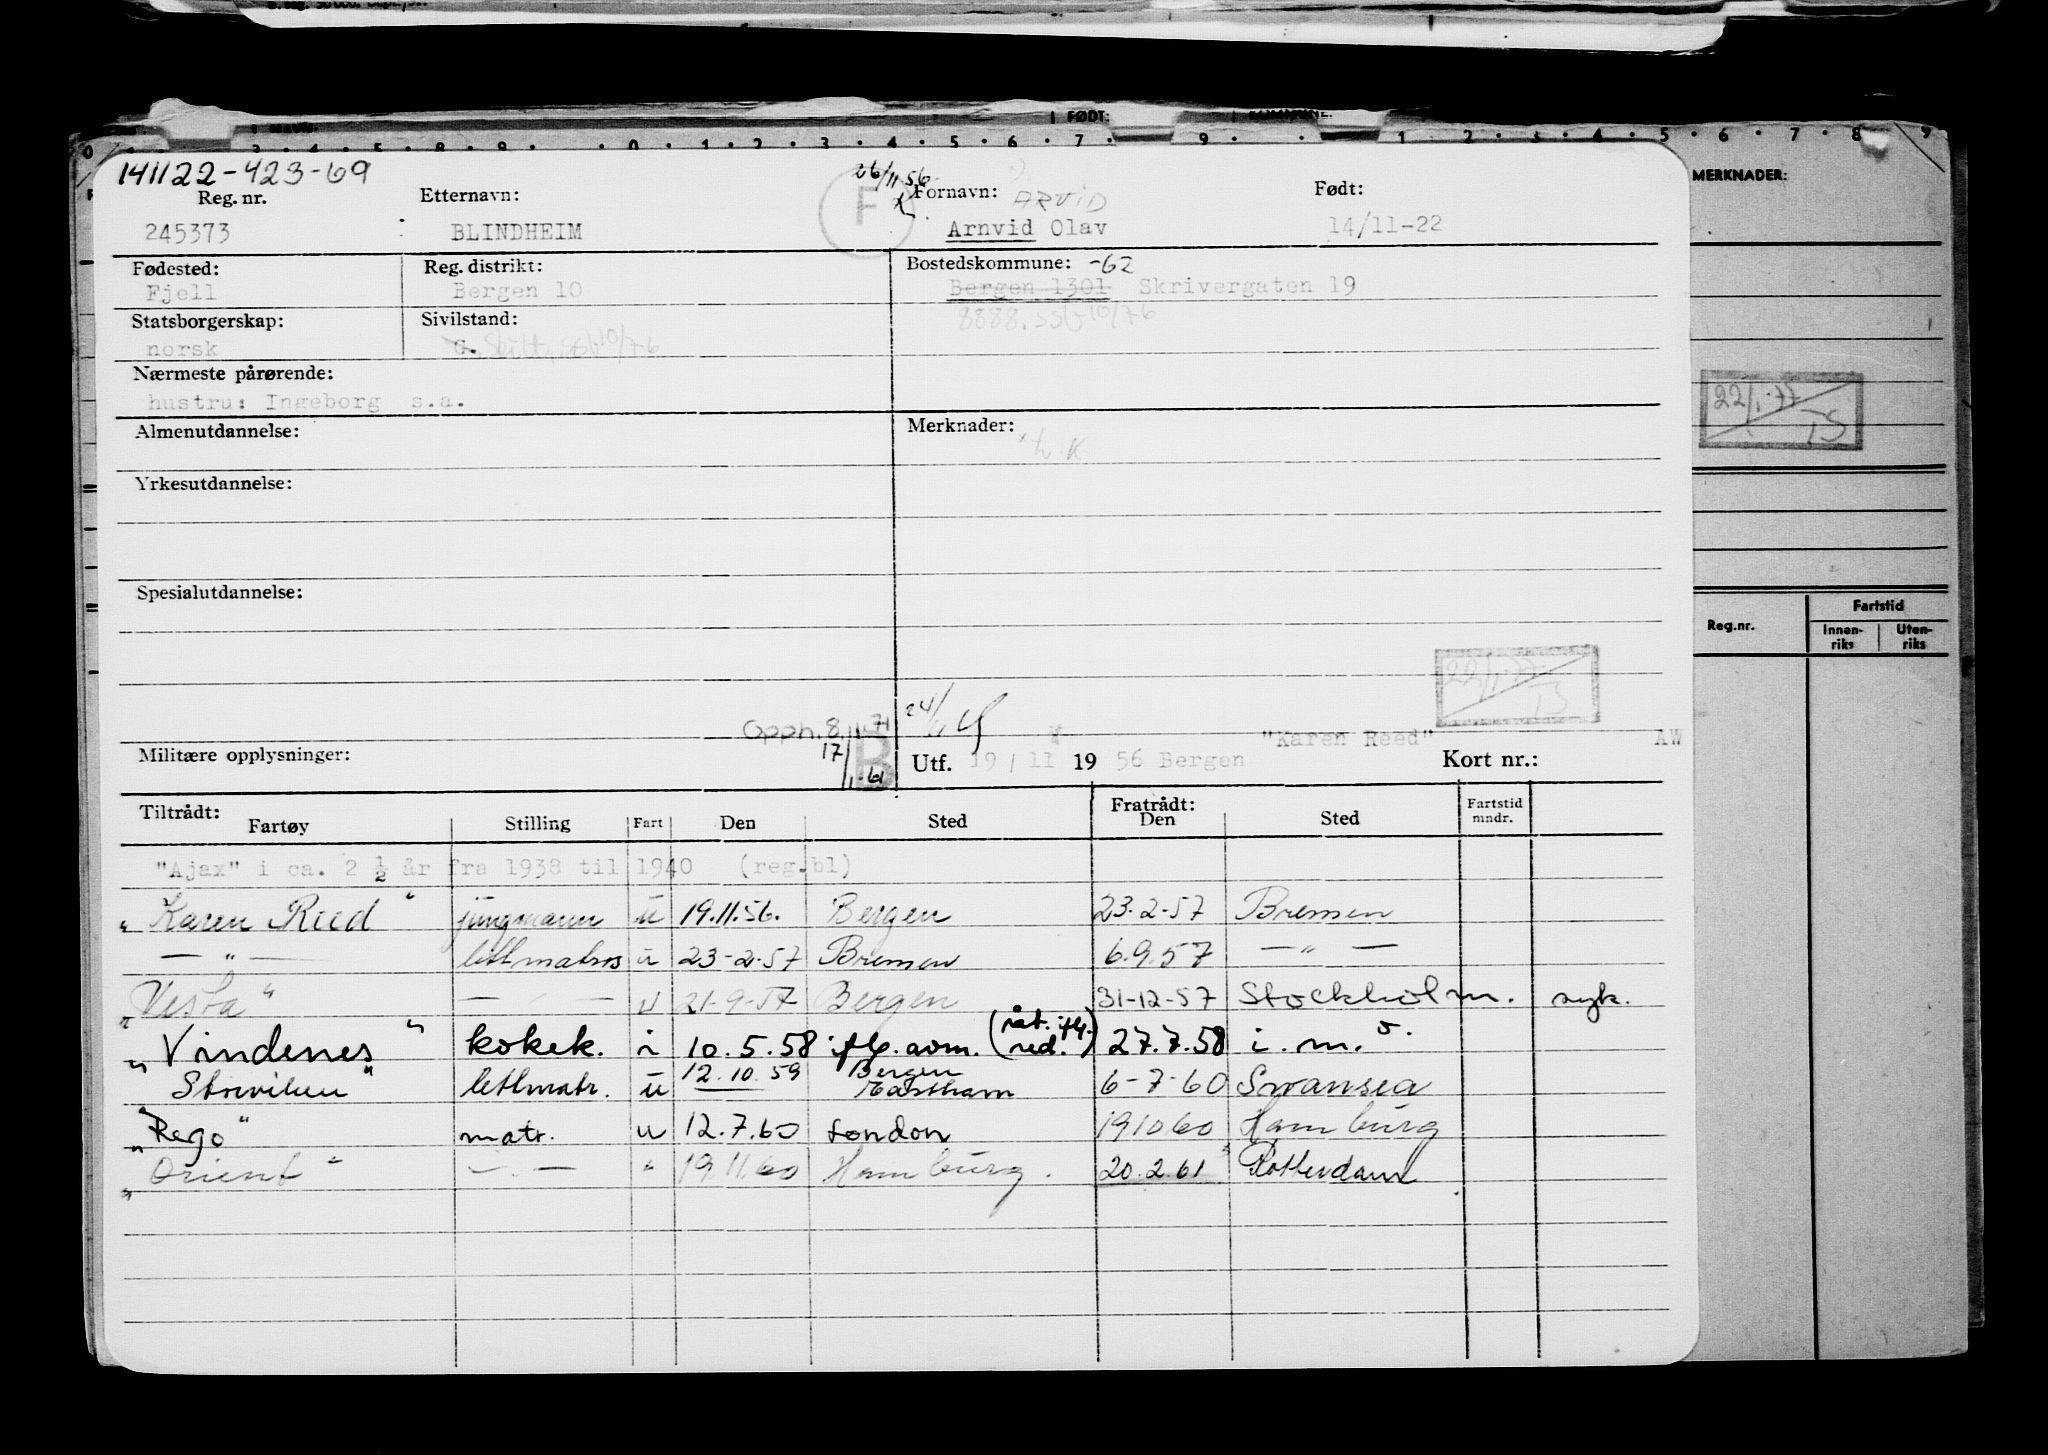 FØDT:
MERKNADER:
141122-423-69
26/11 56
Reg. nr. Etternavn: Fornavn: ARVID Født:
245373 BLINDHEIM F Arnvid Olav 14/11-22
Fødested: Reg. distrikt: Bostedskommune: -62
Fjell Bergen 10 Bergen 1301 Skrivergaten 19
8888. 10/76
Statsborgerskap: Sivilstand:
norsk G. Skilt 10/76
Nærmeste pårørende:
hustru: Ingeborg s.a.
22/1-77 TS
Almenutdannelse: Merknader:
Yrkesutdannelse:
Spesialutdannelse:
Reg.nr. Fartstid
Innen-riks Uten-riks
22/1-77 TS
Opph. 8/1 71
"Karen Reed" AW
Militære opplysninger: 17/1-61 B Utf. 19/11 1956 Bergen Kort nr.:
Tiltrådt: Fratrådt: Fartstid mndr.
Fartøy Stilling Fart Den Sted Den Sted
"Ajax" i ca. 2 ½ år fra 1938 til 1940 (reg.bl)
"Karen Reed" jungmann u 19.11.56. Bergen 23-2-57 Bremen
— " — lettmatros u 23-2-57 Bremen 6.9.57 — " —
"Vesta" — " — u 21-9-57 Bergen 31-12-57 Stockholm. syk.
"Vindenes" kokek. i 10.5.58 27.7.58 i.m.
12.10.59 Bergen
"Storviken" lettmatr. u Eastham 6-7-60 Swansea
"Rego" matr. u 12.7.60 London 191060 Hamburg
"Orient" — " — " 19.11.60 Hamburg. 20.2.61 Rotterdam